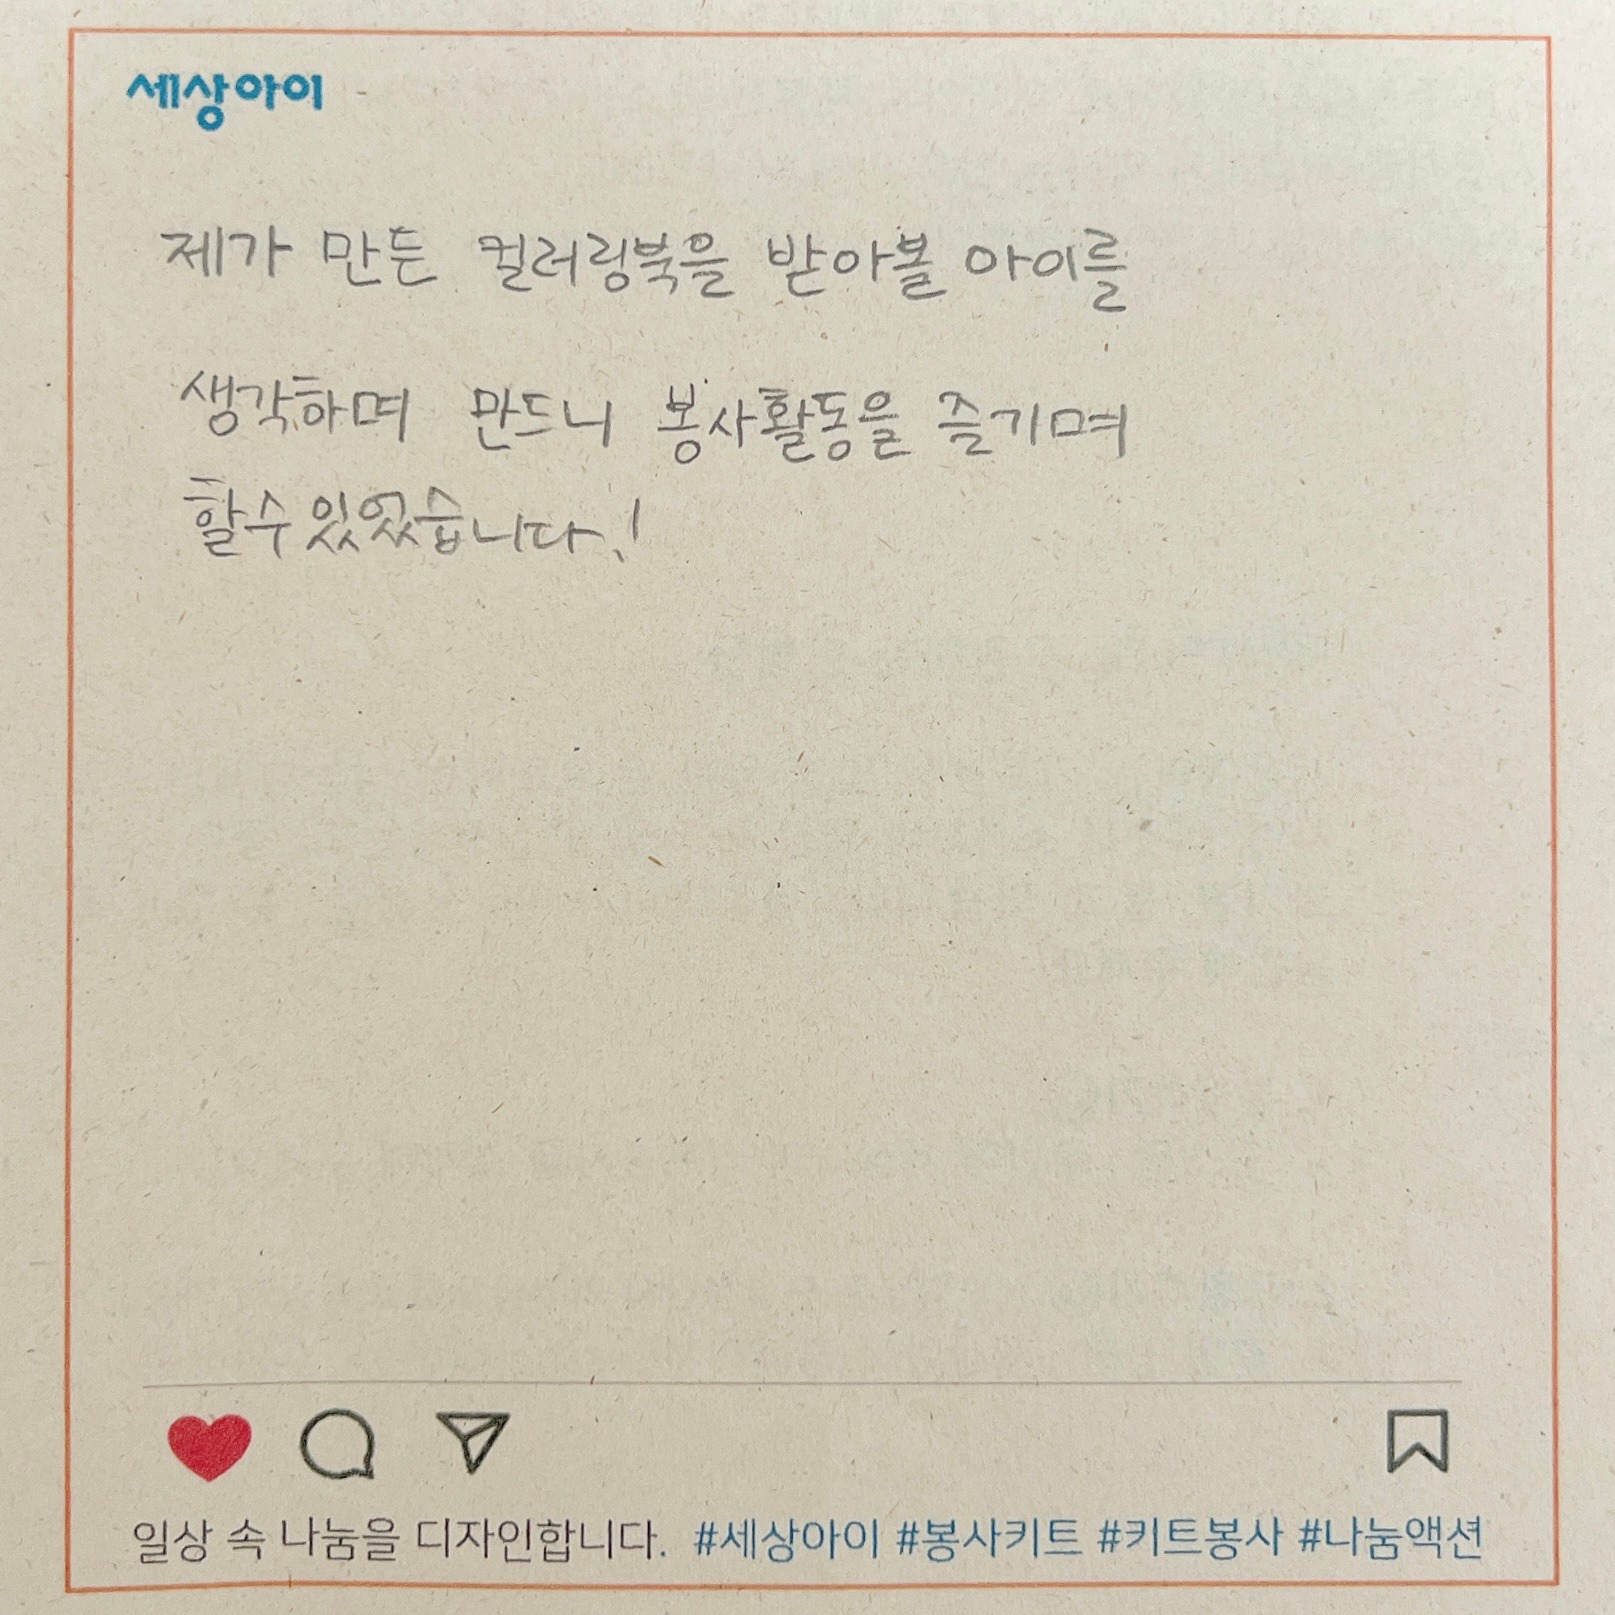 세상아이
제가 만든 컬러링북을 받아볼 아이를
생각하며 만드니 봉사활동을 즐기며
할수있었습니다.!
일상 속 나눔을 디자인합니다. #세상아이 #봉사키트 #키트봉사 #나눔액션